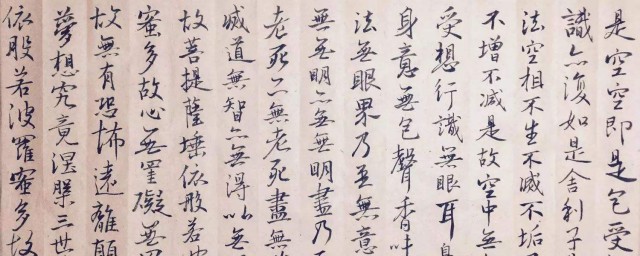 是空空即是色受
識亦復如是舍利子
法空相不生不滅不垢
不增不減是故空中無
受想行識無眼耳
身意無色聲香味
法無眼界乃至無意
無無明亦無無明盡乃
老死亦無老死盡無
滅道無智亦無得以無
故菩提薩埵依般若波
蜜多故心無罣礙無罣
故無有恐怖遠離顛
夢想究竟涅槃三世
依般若波羅蜜多故